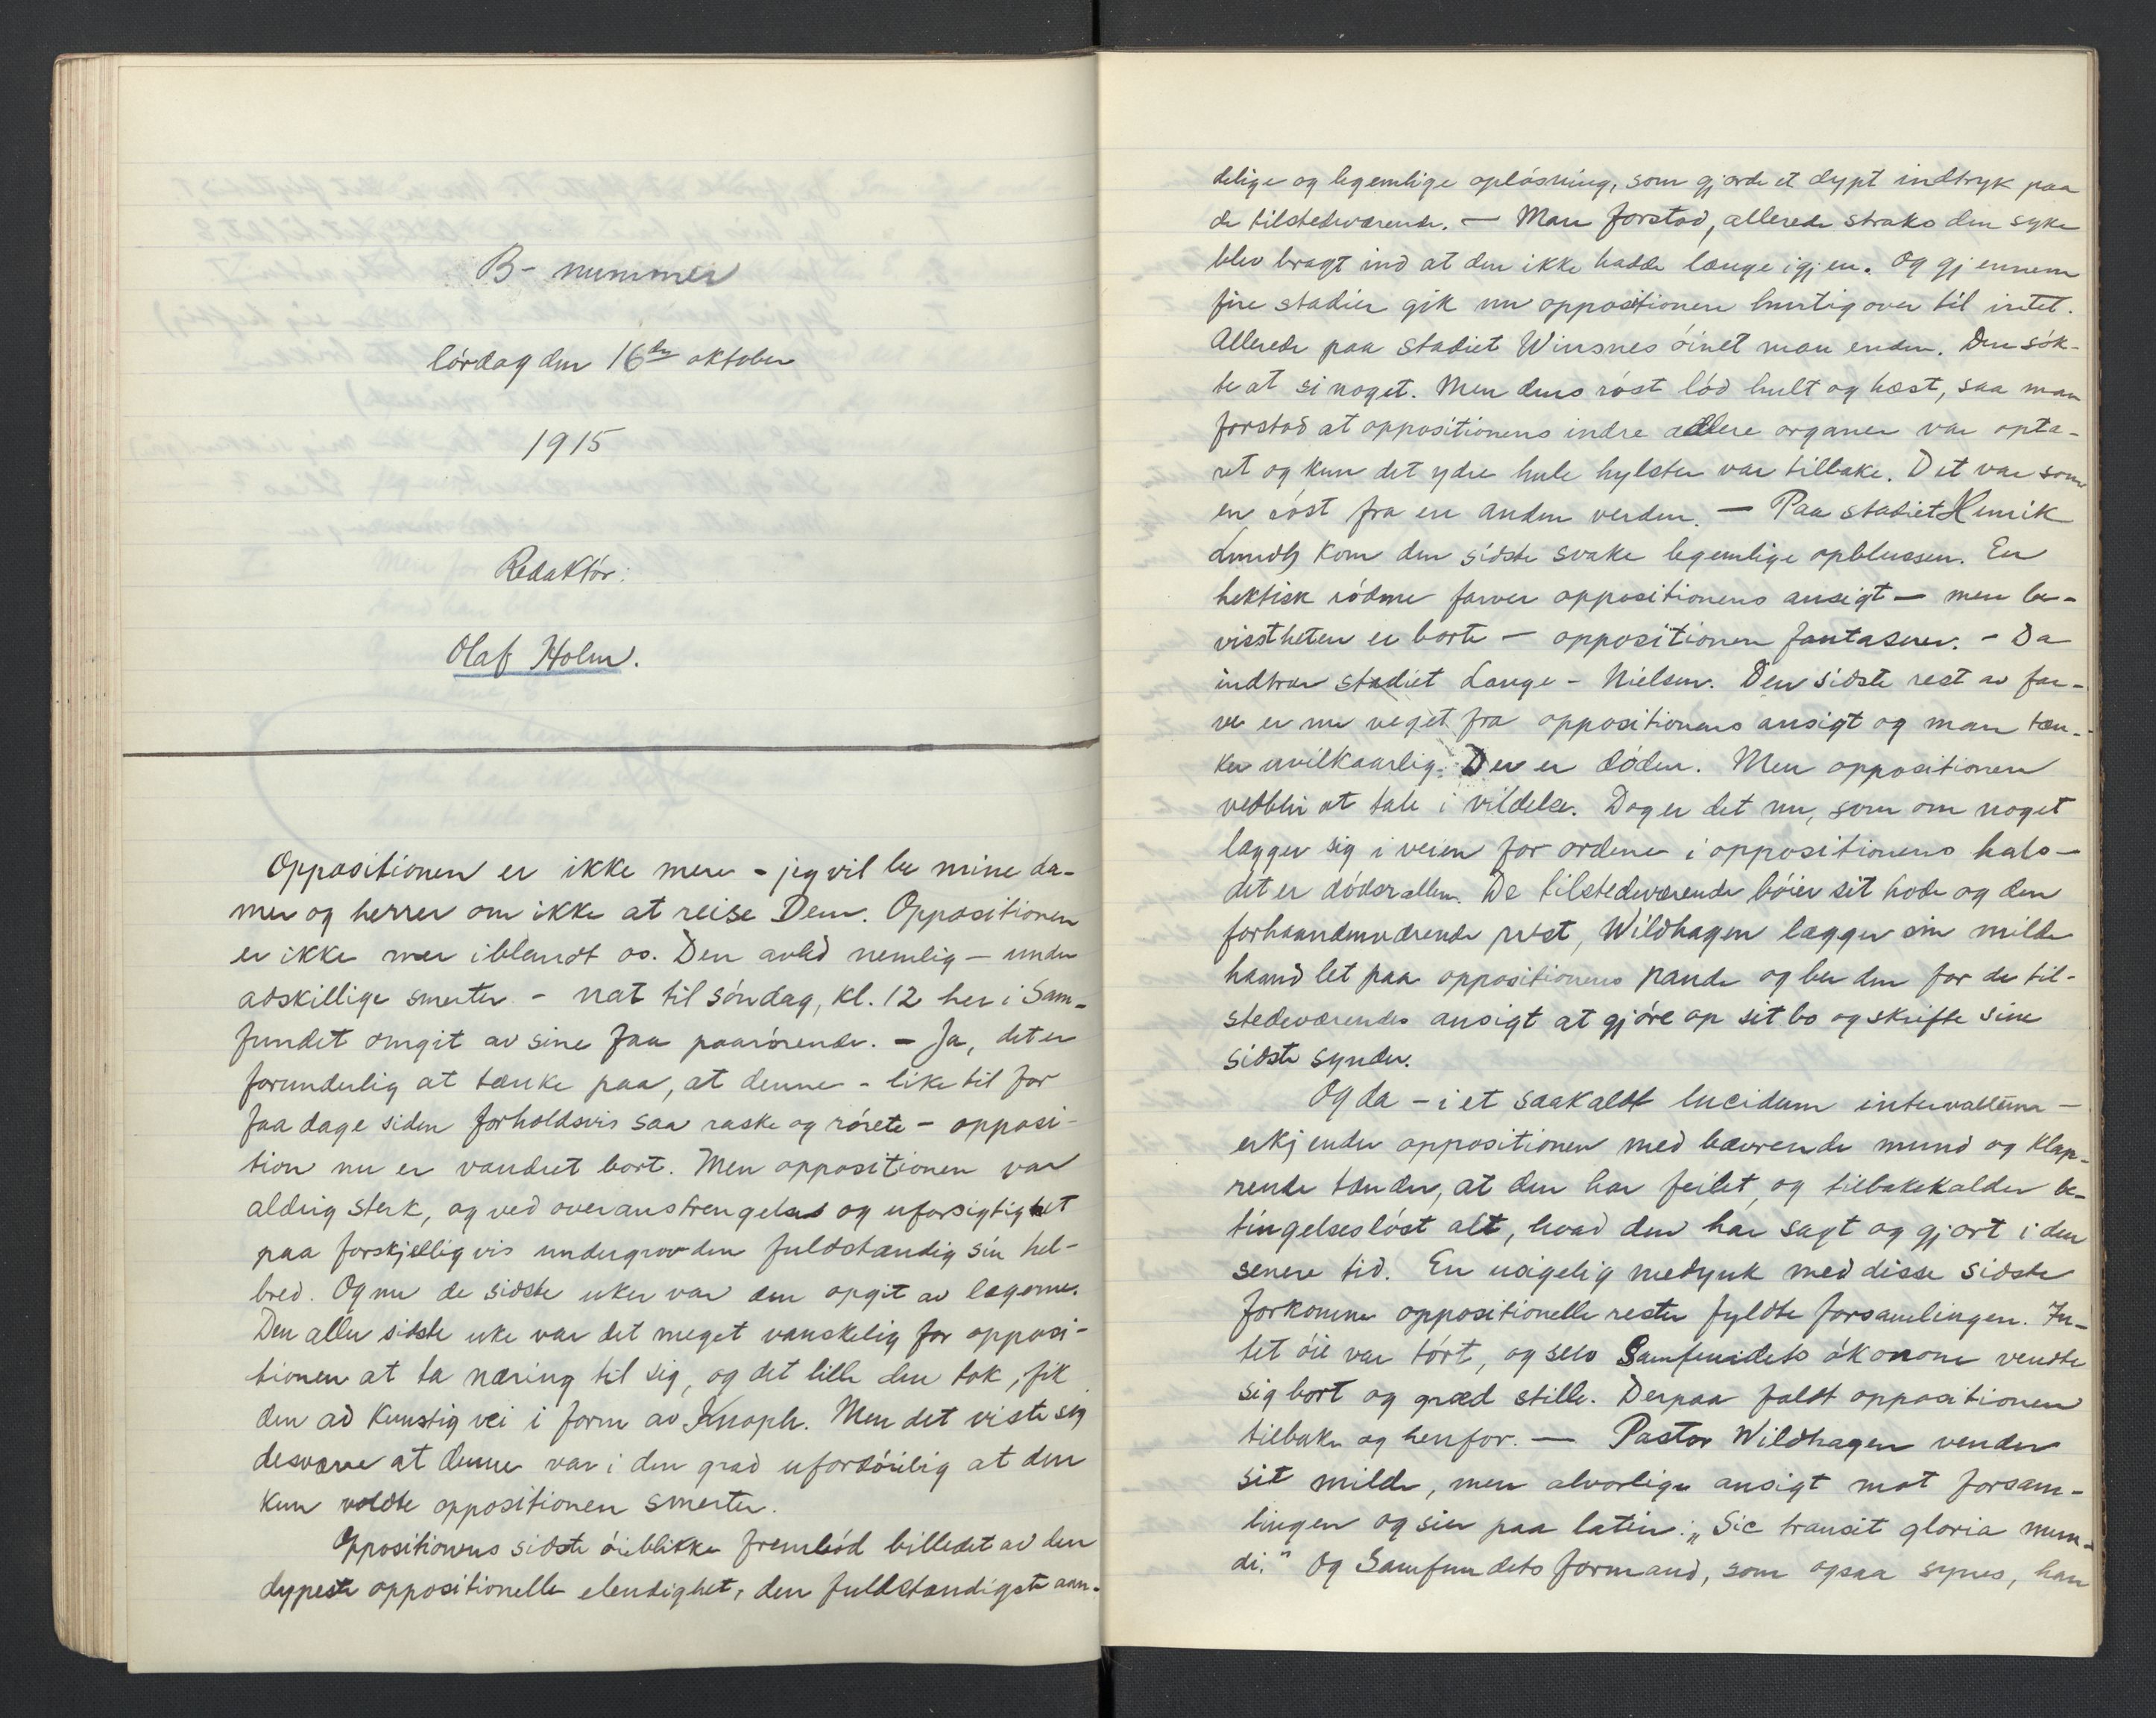 B- nummer
lördag den 16de oktober
1915
Redaktör:
Olaf Holm.
Oppositionen er ikke mere - jeg vil be mine da-
mer og herrer om ikke at reise Dem. Oppositionen
er ikke mer iblandt os. Den avled nemlig - under
adskillige smerter - nat til söndag, kl. 12 her i Sam-
fundet omgit av sine faa paarörende. - Ja, det er
forunderlig at tænke paa, at denne - like til for
faa dage siden forholdsvis saa raske og rörete - opposi-
tion nu er vandret bort. Men oppositionen var
aldrig sterk, og ved overanstrengelse og uforsigtighet
paa forskjellig vis undergrov den fuldstændig sin hel-
bred. Og nu de sidste uker var den opgit av lægerne.
Den aller sidste uke var det meget vanskelig for opposi-
tionen at ta næring til sig, og det lille den tok, fik
den ad kunstig vei i form av Knoph. Men det viste sig
desværre at denne var i den grad ufordöielig at den
kun voldte oppositionen smerter.
Oppositionens sidste öieblikke fremböd billedet av den
dypeste oppositionelle elendighet, den fuldstændigste aan-
delige og legemlige oplösning, som gjorde et dypt indtryk paa
de tilstedeværende. - Man forstod, allerede straks den syke
blev bragt ind at den ikke hadde længe igjen. Og gjennem
fire stadier gik nu oppositionen hurtig over til intet.
Allerede paa stadiet Winsnes öinet man enden. Den sök-
te at si noget. Men dens röst löd hult og hæst, saa man
forstod at oppositionens indre ædlere organer var optæ-
ret og kun det ydre hule hylster var tilbake. Det var som
en röst fra en anden verden. - Paa stadiet Henrik
Lundh kom den sidste svake legemlige opblussen. En
hektisk rödme farver oppositionens ansigt - men be-
visstheten er borte - oppositionen fantaserer. - Da
indtræer stadiet Lange - Nielsen. Den sidste rest av far-
ve er nu veget fra oppositionens ansigt og man tæn-
ker uvilkaarlig: Der er döden. Men oppositionen
vedblir at tale i vildelse. Dog er det nu, som om noget
lægger sig i veien for ordene i oppositionens hals -
det er dödsrallen. De tilstedeværende böier sit hode og den
forhaandenværende prest, Wildhagen lægger sin milde
haand let paa oppositionens pande og ber den for de til-
stedeværendes ansigt at gjöre op sit bo og skrifte sine
sidste synder.
Og da - i et saakaldt lucidum intervallum -
erkjender oppositionen med bævrende mund og klap-
rende tænder, at den har feilet, og tilbakekalder be-
tingelseslöst alt, hvad den har sagt og gjort i den
senere tid. En usigelig medynk med disse sidste
forkomne oppositionelle rester fyldte forsamlingen. In-
tet öie var tört, og selv Samfundets ökonom vendte
sig bort og græd stille. Derpaa faldt oppositionen
tilbake og henfor. - Pastor Wildhagen vender
sit milde, men alvorlige ansigt mot forsam-
lingen og sier paa latin: „Sic transit gloria mun-
di." Og Samfundets formand, som ogsaa synes, han